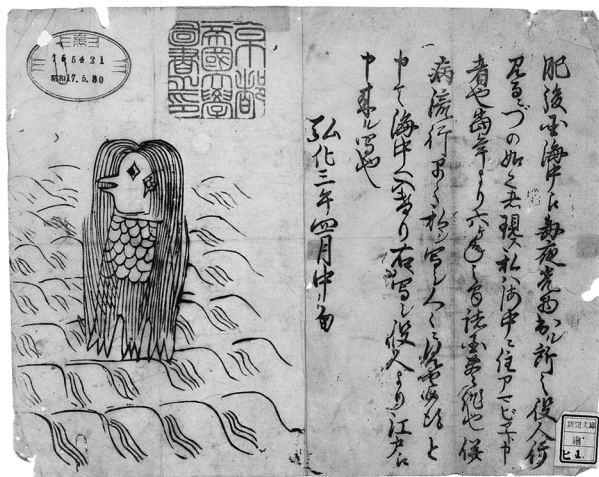 肥後国海中え毎夜光物出ル所之役人行
見るニづの如く者現ス私ハ海中ニ住アマビヱト申
者也當年より六ヶ年之間諸国豊作也併
病流行早々私シ写シ人々ニ見セ候得と
申て海中へ入けり右写シ役人より江戸え
申来ル写也
弘化三年四月中旬
京都
帝國大學
圖書之印
765421
昭和17.5.30
新聞文庫